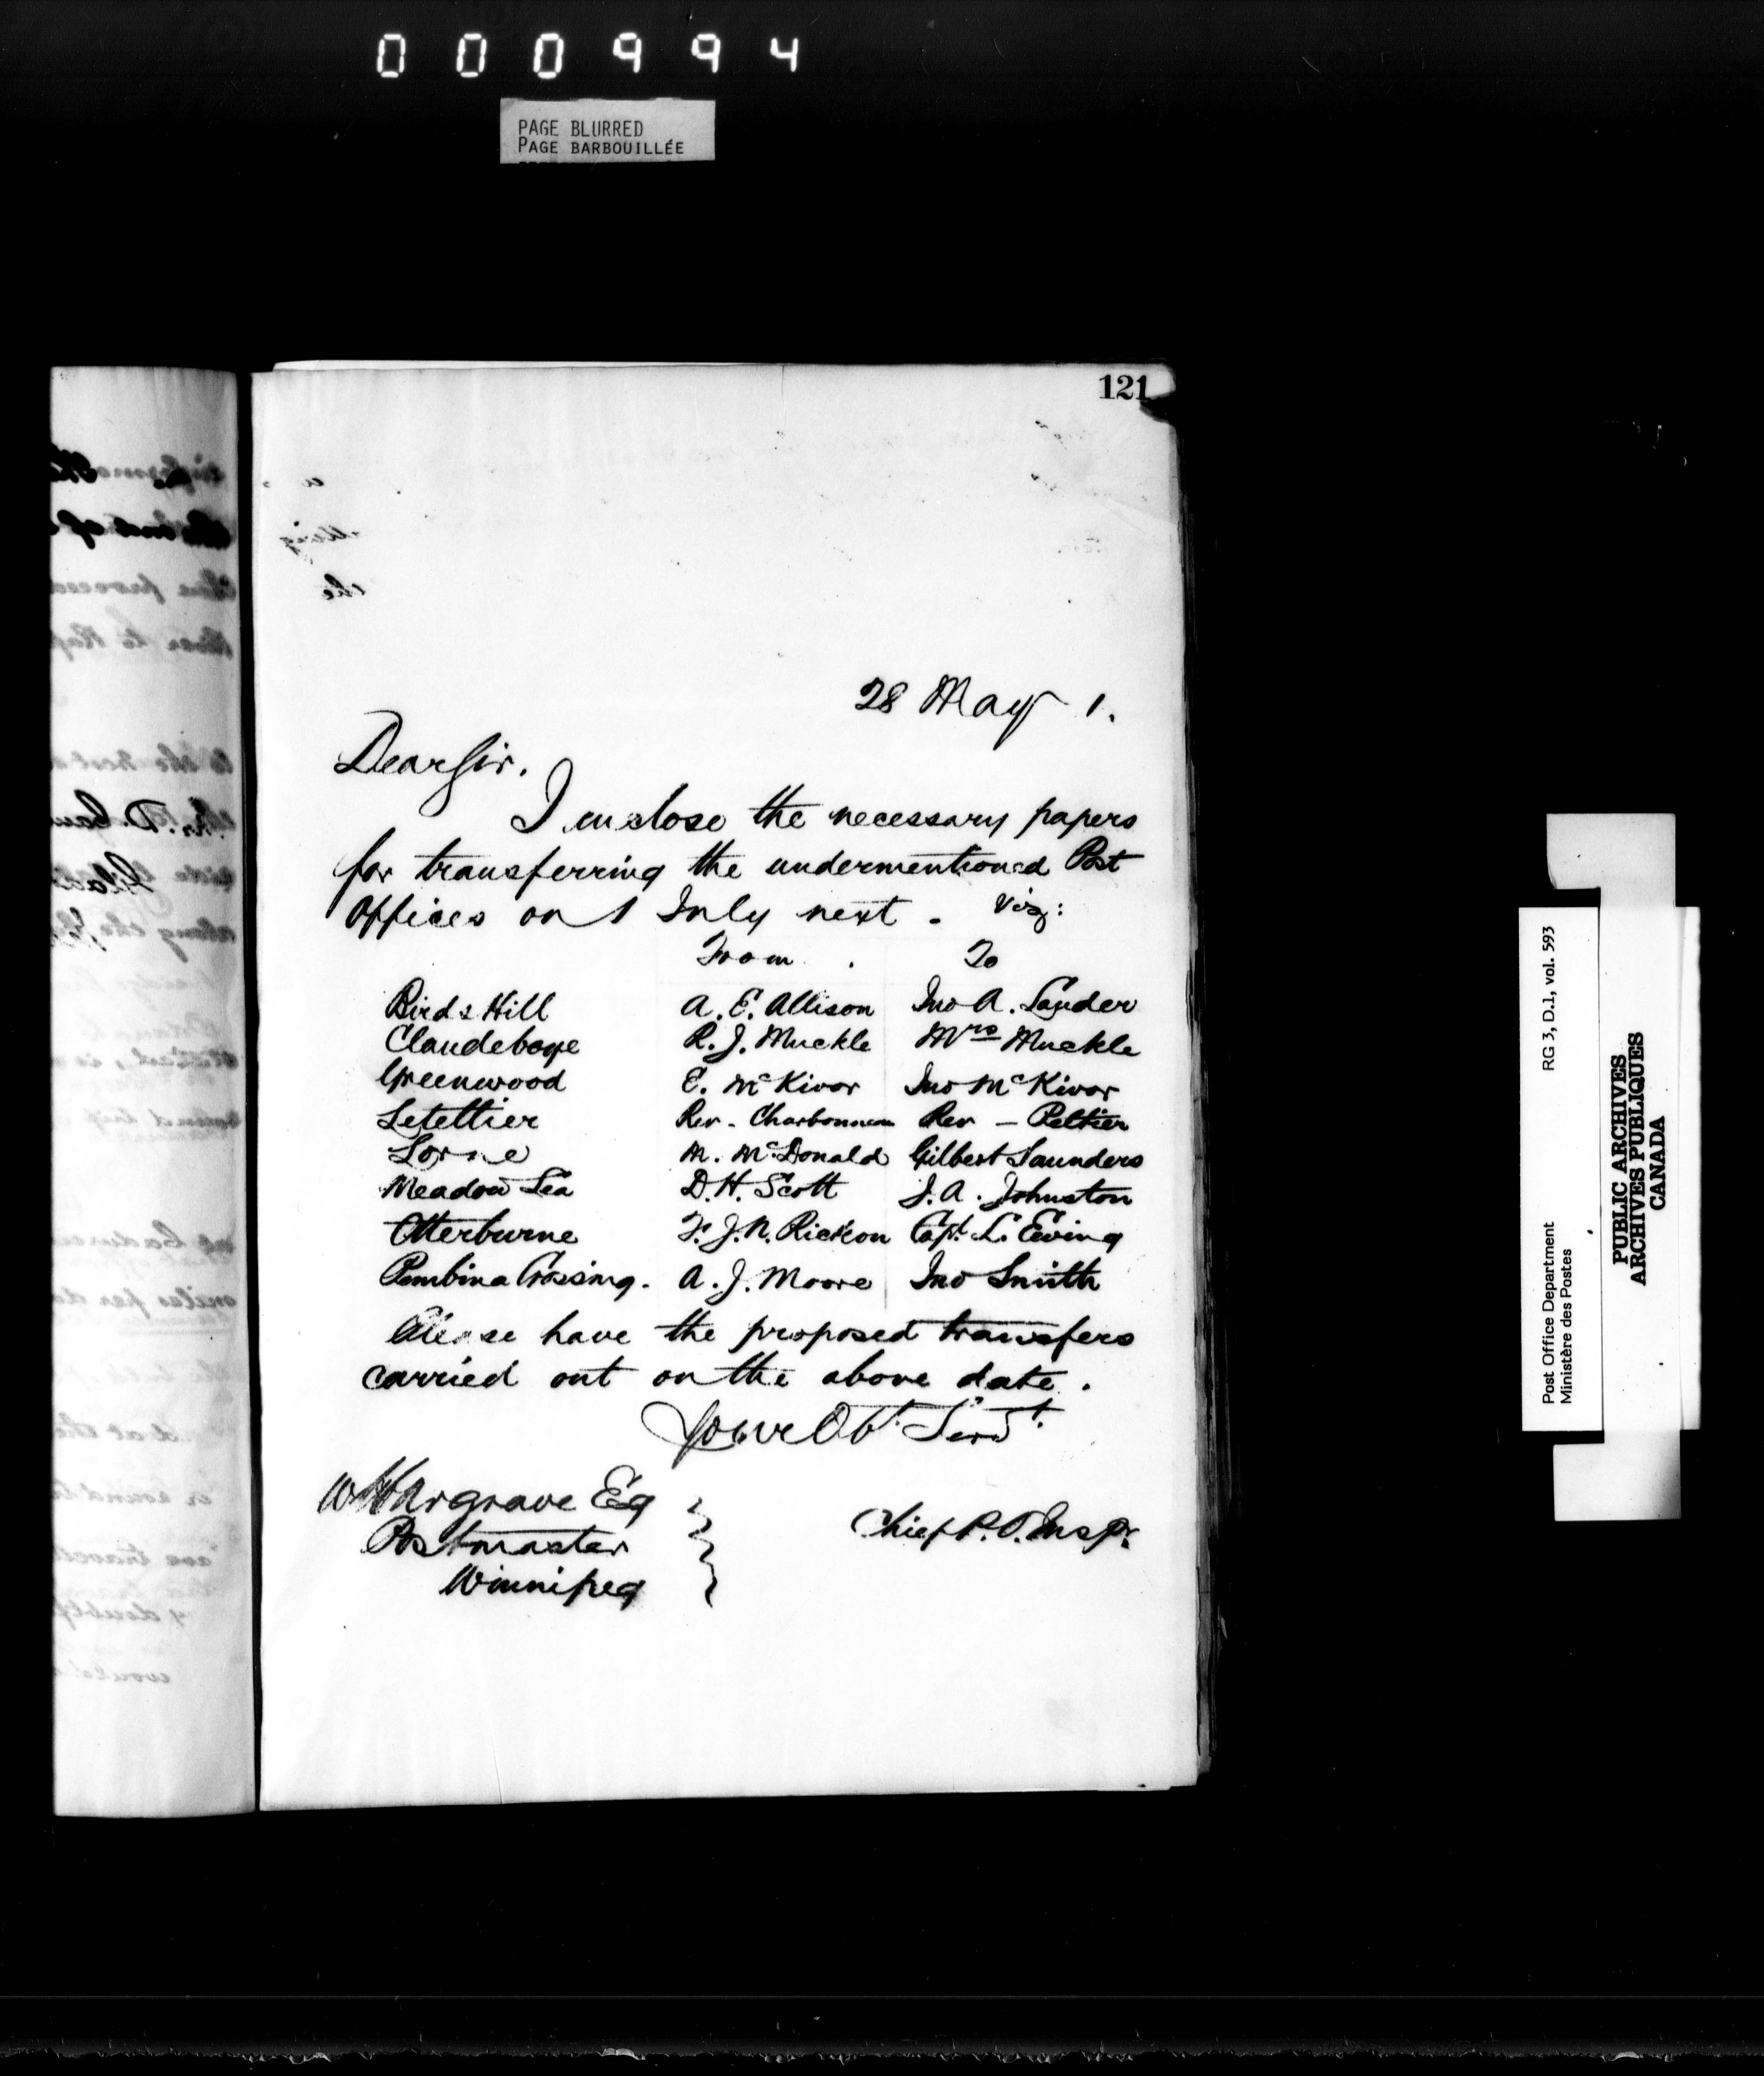 000994
PAGE BLURRED
PAGE BARBOUILLÉE
121
28 May 1.
Dear Sir.
I enclose the necessary papers
for transferring the undermentioned Post
Offices on 1 July next. Viz:
From . To
Birds Hill A. E. Allison Jno A. Lauder
Clandeboye R. J. Muckle Mrs Muckle
Greenwood E. McKivor Jno McKivor
Letellier Rev. Charbonneau Rev - Peltier
Lorne M. McDonald Gilbert Saunders
Meadow Lea D. H. Scott J. A. Johnston
Otterburne F. J. N. Rickon Capt. L. Ewing
Pembina Crossing. A. J. Moore Jno Smith
Please have the proposed transfers
carried out on the above date.
Your Obt Servt.
W Hargrave Esq
Postmaster
Winnipeg
Chief P. O. Inspr.
Post Office Department RG 3, D.1, vol. 593
Ministère des Postes
PUBLIC ARCHIVES
ARCHIVES PUBLIQUES
CANADA